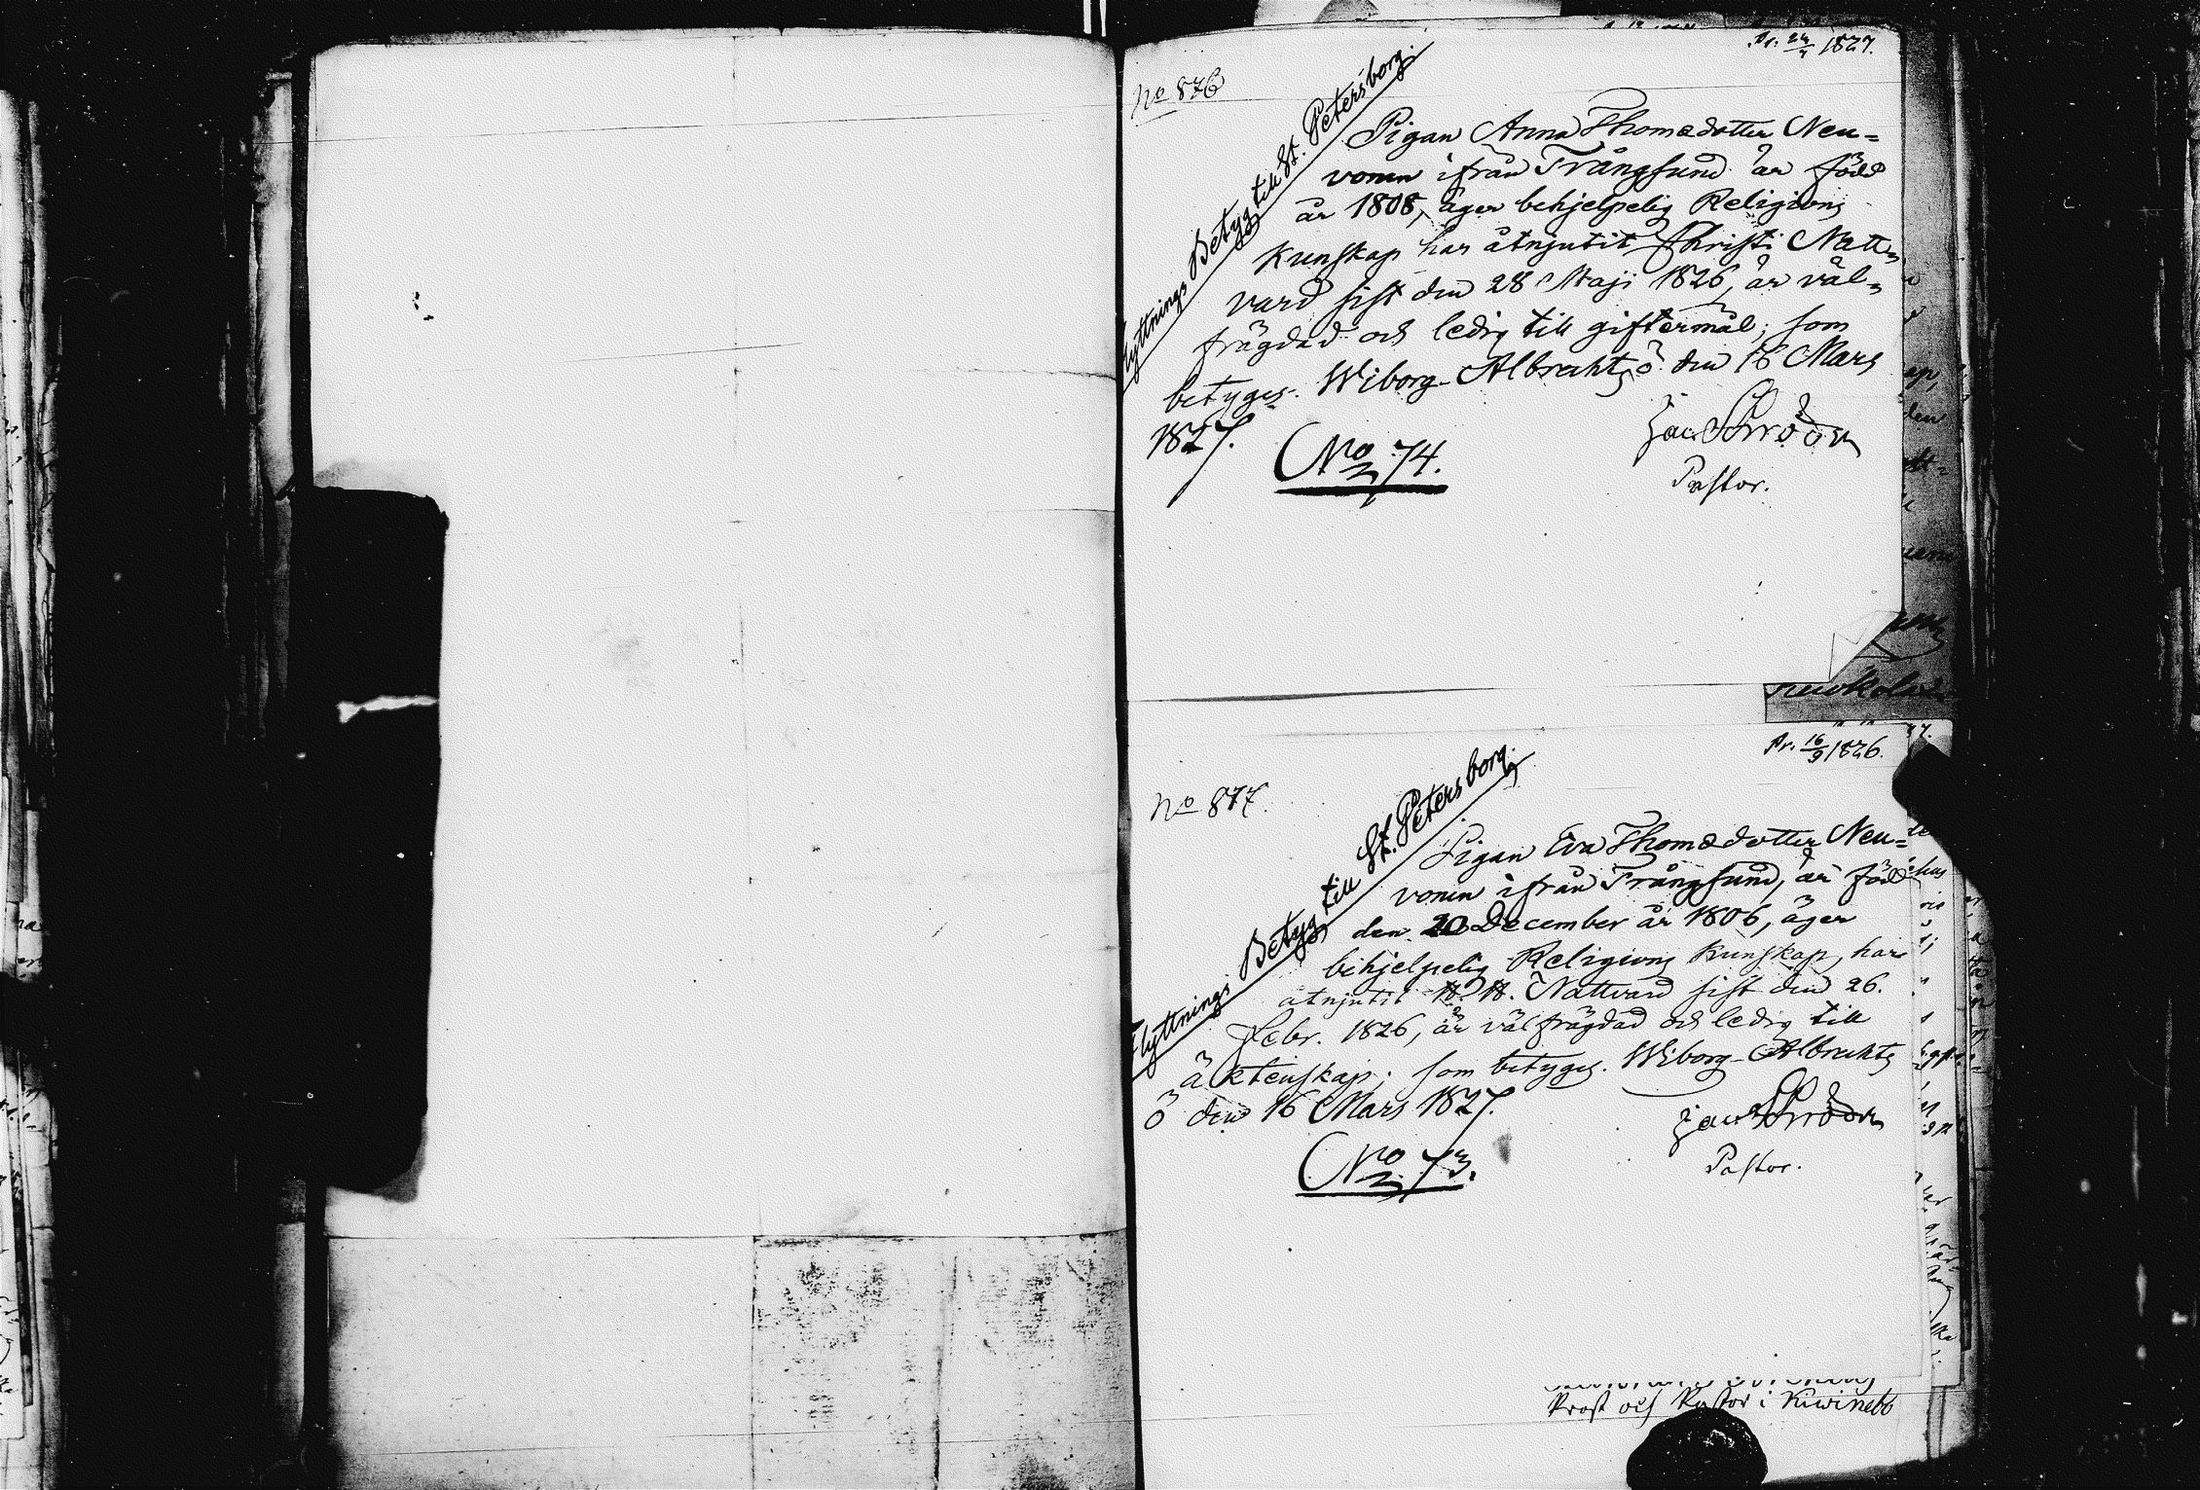 No 876
Pr. 24/7 1827.
Flyttnings Betyg till St. Petersborg.
Pigan Anna Thomædotter Neu=
vonen ifrån Trångsund är född
år 1808, äger behjelpelig Religions
Kunskap har åtnjutit Christi Natt=
vard sist den 28 Maji 1826, är väl=
frägdad och ledig till giftermål; som
betyges. Wiborg-Albrechts ö den 16 Mars
1827.
Jac. Schröder
Pastor.
No 74.
No 877.
Pr. 16/9 1826.
Flyttnings Betyg till St. Petersborg.
Pigan Eva Thomædotter Neu=
vonen ifrån Trångsund, är född
den 20 December år 1806, äger
behjelpelig Religions Kunskap, har
åtnjutit H. H. Nattvard sist den 26.
Febr. 1826, är välfrägdad och ledig till
äktenskap; som betyges. Wiborg-Albrechts
ö den 16 Mars 1827.
Jac. Schröder
Pastor.
No 73.
Prost och Pastor i Kiwinebb